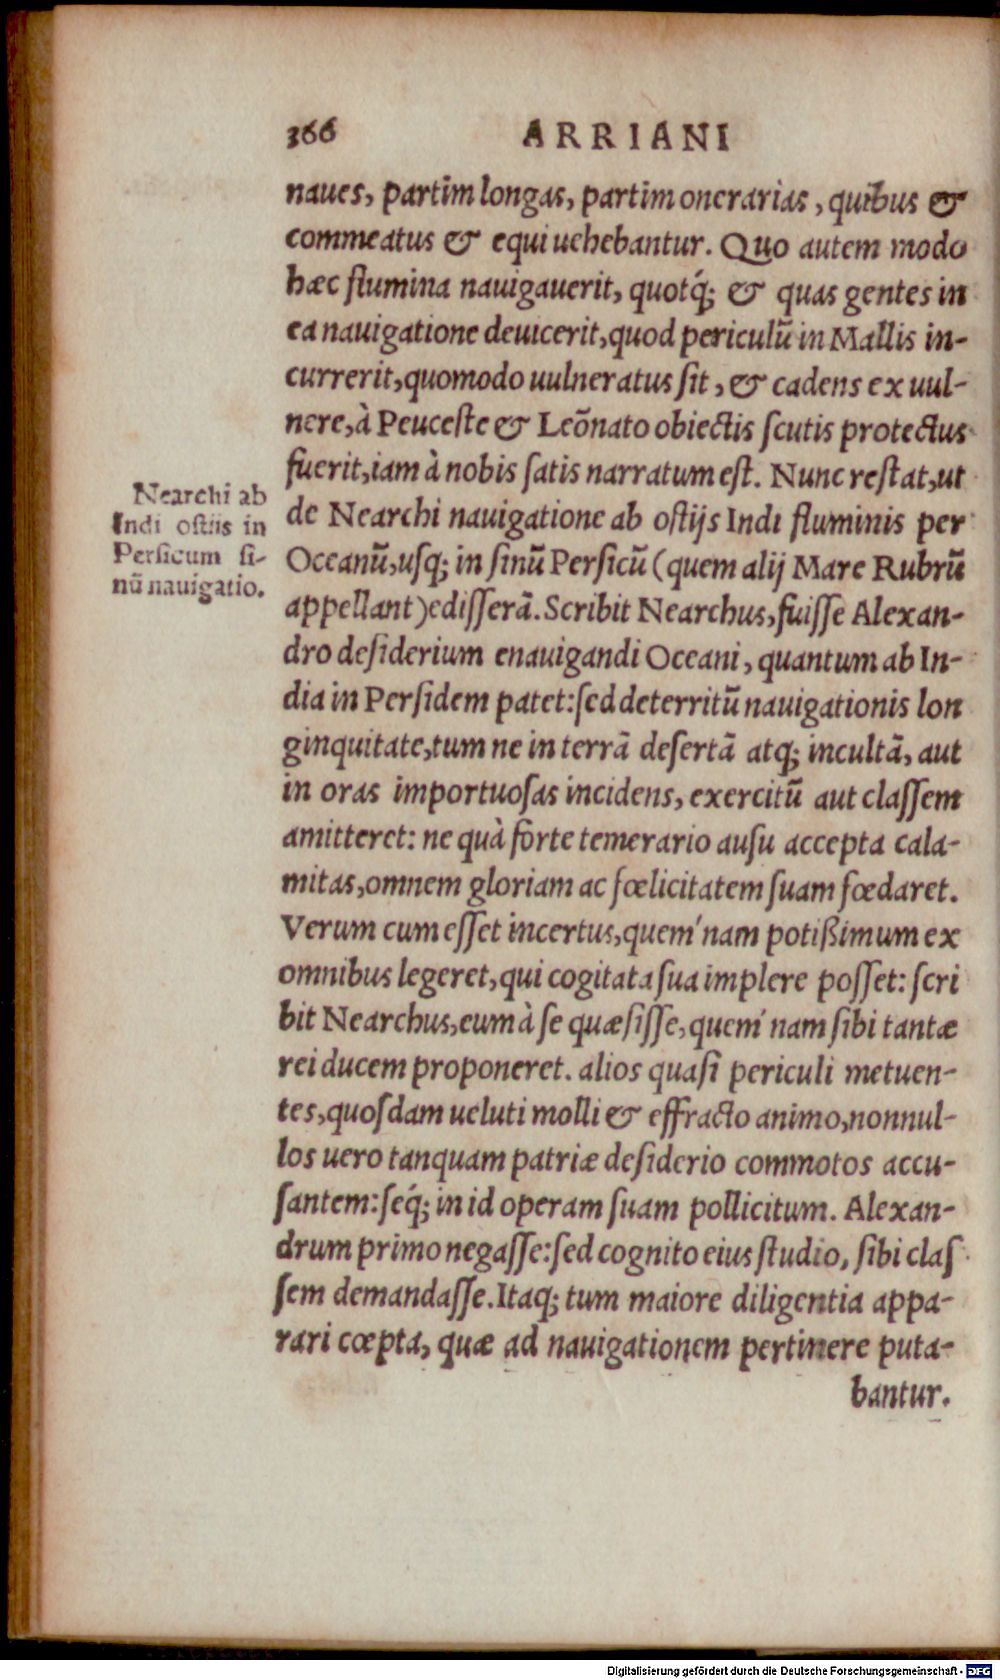 366 ARRIANI
naues, partim longas, partim onerarias, quibus &
commeatus & equi uehebantur. Quo autem modo
hæc flumina nauigauerit, quotq́; & quas gentes in
ea nauigatione deuicerit, quod periculũ in Mallis in-
currerit, quomodo uulneratus sit, & cadens ex uul-
nere, à Peuceste & Leõnato obiectis scutis protectus
fuerit, iam à nobis satis narratum est. Nunc restat, ut
de Nearchi nauigatione ab ostijs Indi fluminis per
Oceanũ, usq; in sinũ Persicũ (quem alij Mare Rubrũ
appellant) edisserã. Scribit Nearchus, fuisse Alexan-
dro desiderium enauigandi Oceani, quantum ab In-
dia in Persidem patet: sed deterritũ nauigationis lon
ginquitate, tum ne in terrã desertã atq; incultã, aut
in oras importuosas incidens, exercitũ aut classem
amitteret: ne quà forte temerario ausu accepta cala-
mitas, omnem gloriam ac fœlicitatem suam fœdaret.
Verum cum esset incertus, queḿ nam potißimum ex
omnibus legeret, qui cogitata sua implere posset: scri
bit Nearchus, eum à se quæsisse, queḿ nam sibi tantæ
rei ducem proponeret. alios quasi periculi metuen-
tes, quosdam ueluti molli & effracto animo, nonnul-
los uero tanquam patriæ desiderio commotos accu-
santem: seq́; in id operam suam pollicitum. Alexan-
drum primo negasse: sed cognito eius studio, sibi clas
sem demandasse. Itaq; tum maiore diligentia appa-
rari cœpta, quæ ad nauigationem pertinere puta-
bantur.
Nearchi ab
Indi ostiis in
Persicum si-
nũ nauigatio.
Digitalisierung gefördert durch die Deutsche Forschungsgemeinschaft - DFG